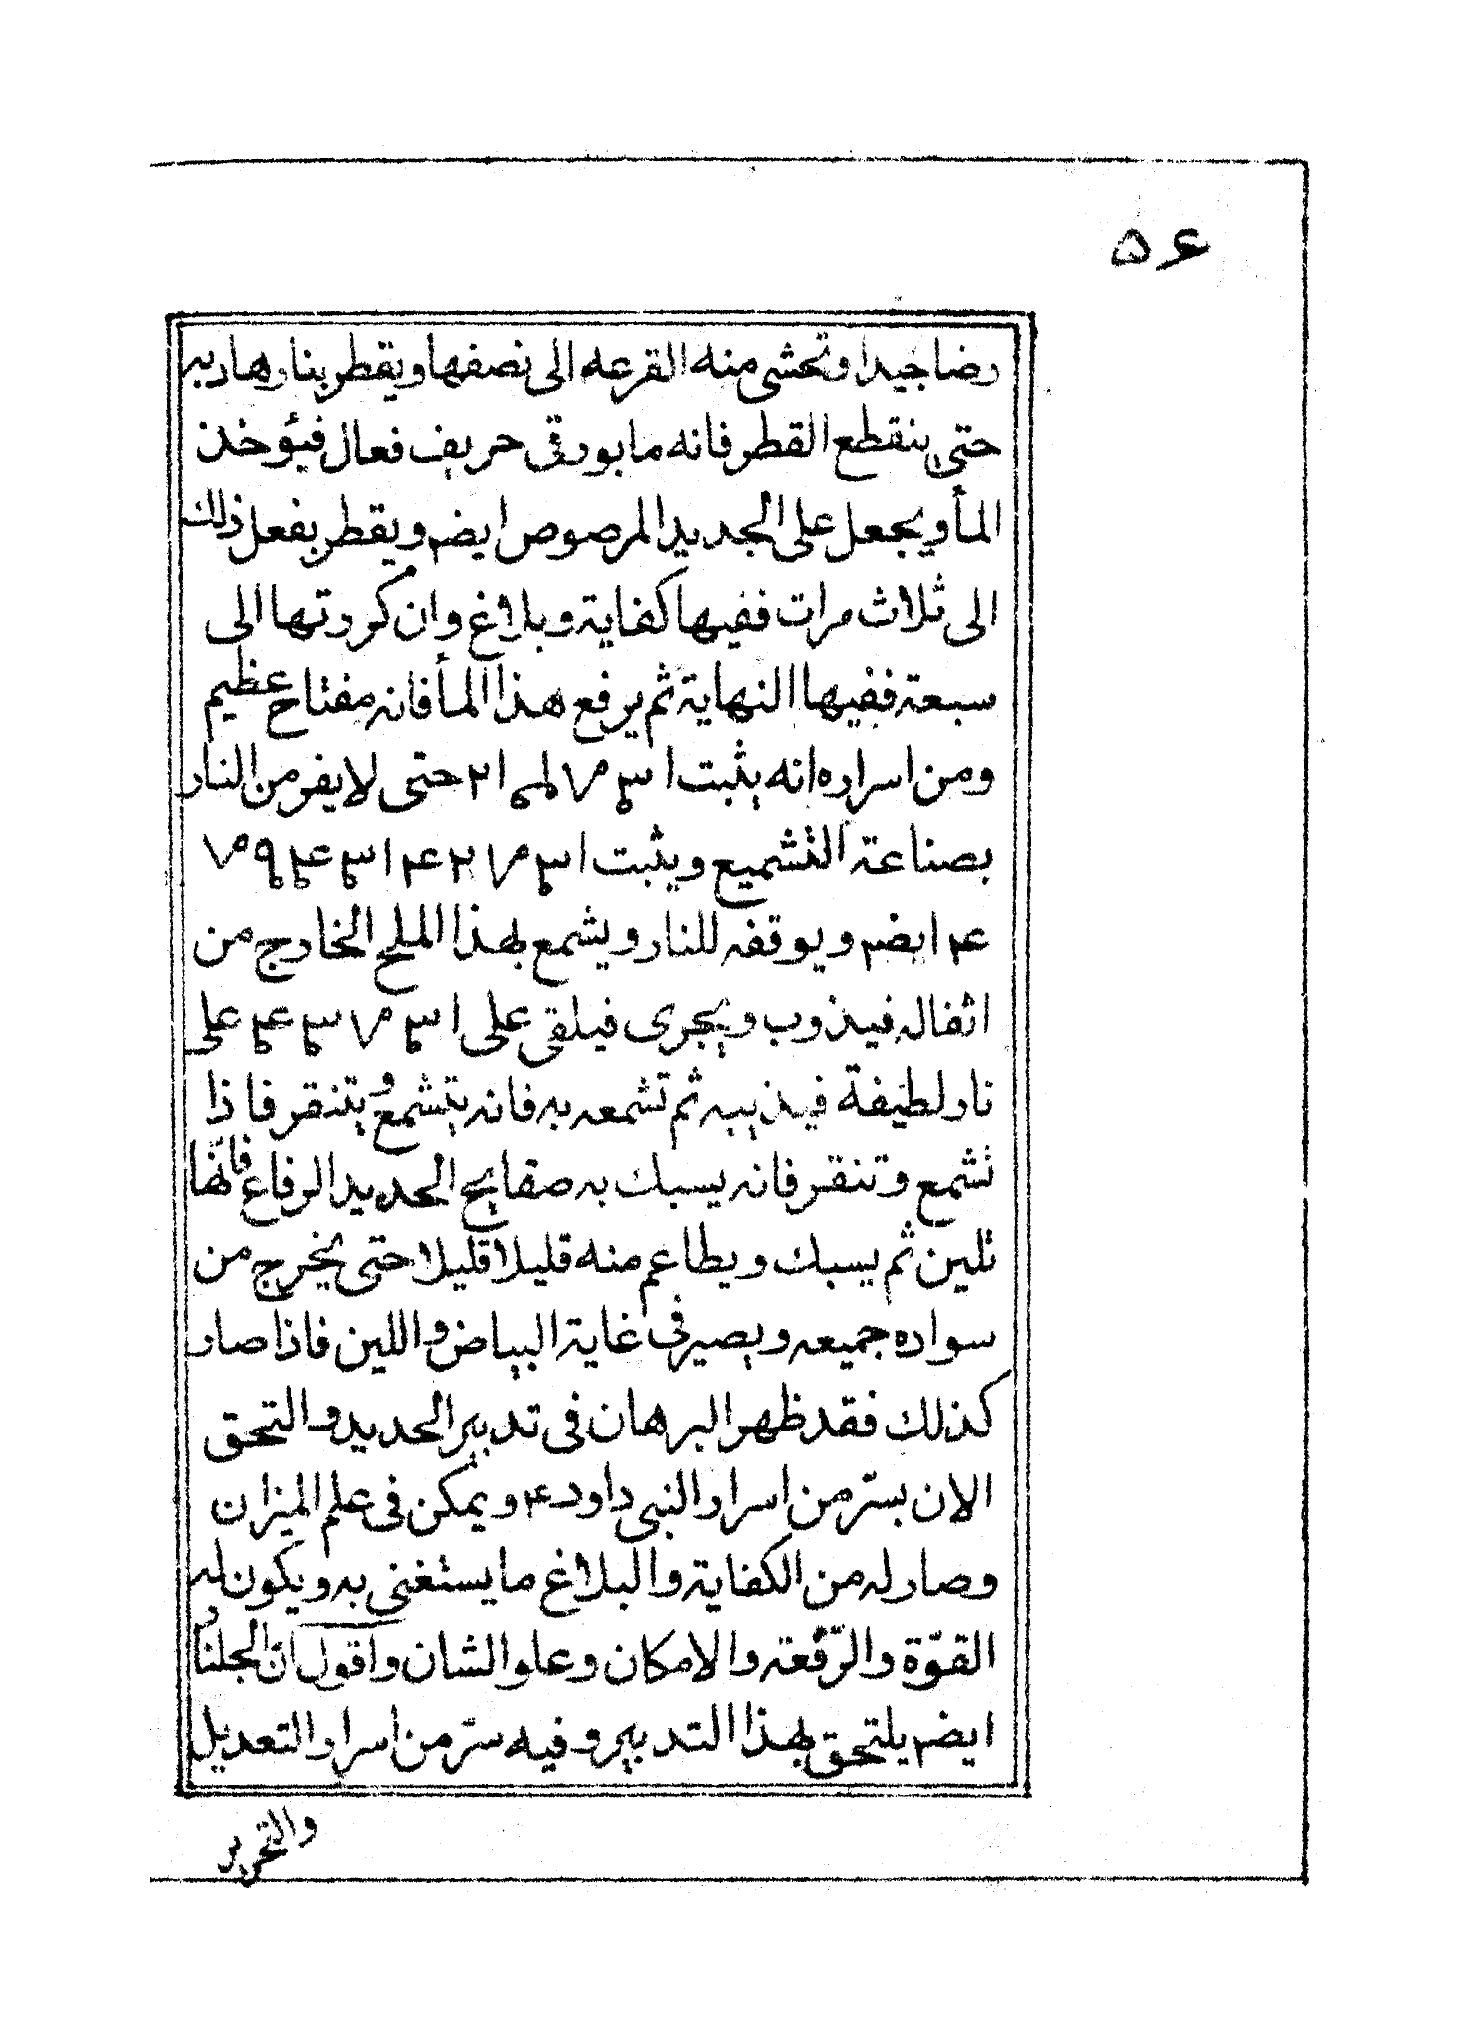 ٥٤
رضا جيدا وتحشى منه القرعه الى نصفها ويقطر بنار هاديه
حتى ينقطع القطر فانه ما بورقى حريف فعال فيؤخذ
المأ ويجعل على الحديد المرصوص ايضم ويقطر يفعل ذلك
الى ثلاث مرات ففيها كفاية وبلاغ وان كررتها الى
سبعة ففيها النهاية ثم يرفع هذا المأ فانه مفتاح عظيم
ومن اسراره انه يثبت ا حتى لا يفر من النار
بصناعة التشميع ويثبت ا
ايضم ويوقفه للنار ويشمع بهذا الملح الخارج من
اثفاله فيذوب ويجرى فيلقى على ا على
نار لطيفة فيذيبه ثم تشمعه به فانه يتشمع ويتنقر فاذا
تشمع وتنقر فانه يسبك به صفايح الحديد الرقاع فانها
تلين ثم يسبك ويطاعم منه قليلا قليلا حتى يخرج من
سواده جميعه ويصير فى غاية البياض واللين فاذا صار
كذلك فقد ظهر البرهان فى تدبير الحديد والتحق
الان بسرّ من اسرار النبى داود ع‍م ويمكن فى علم الميزان
وصار له من الكفاية والبلاغ ما يستغنى به ويكون له
القوّة والرّفعة والامكان وعلو الشان واقول انّ الجلنار
ايضم يلتحق بهذا التدبير وفيه سرّ من اسرار التعديل
والتحرير